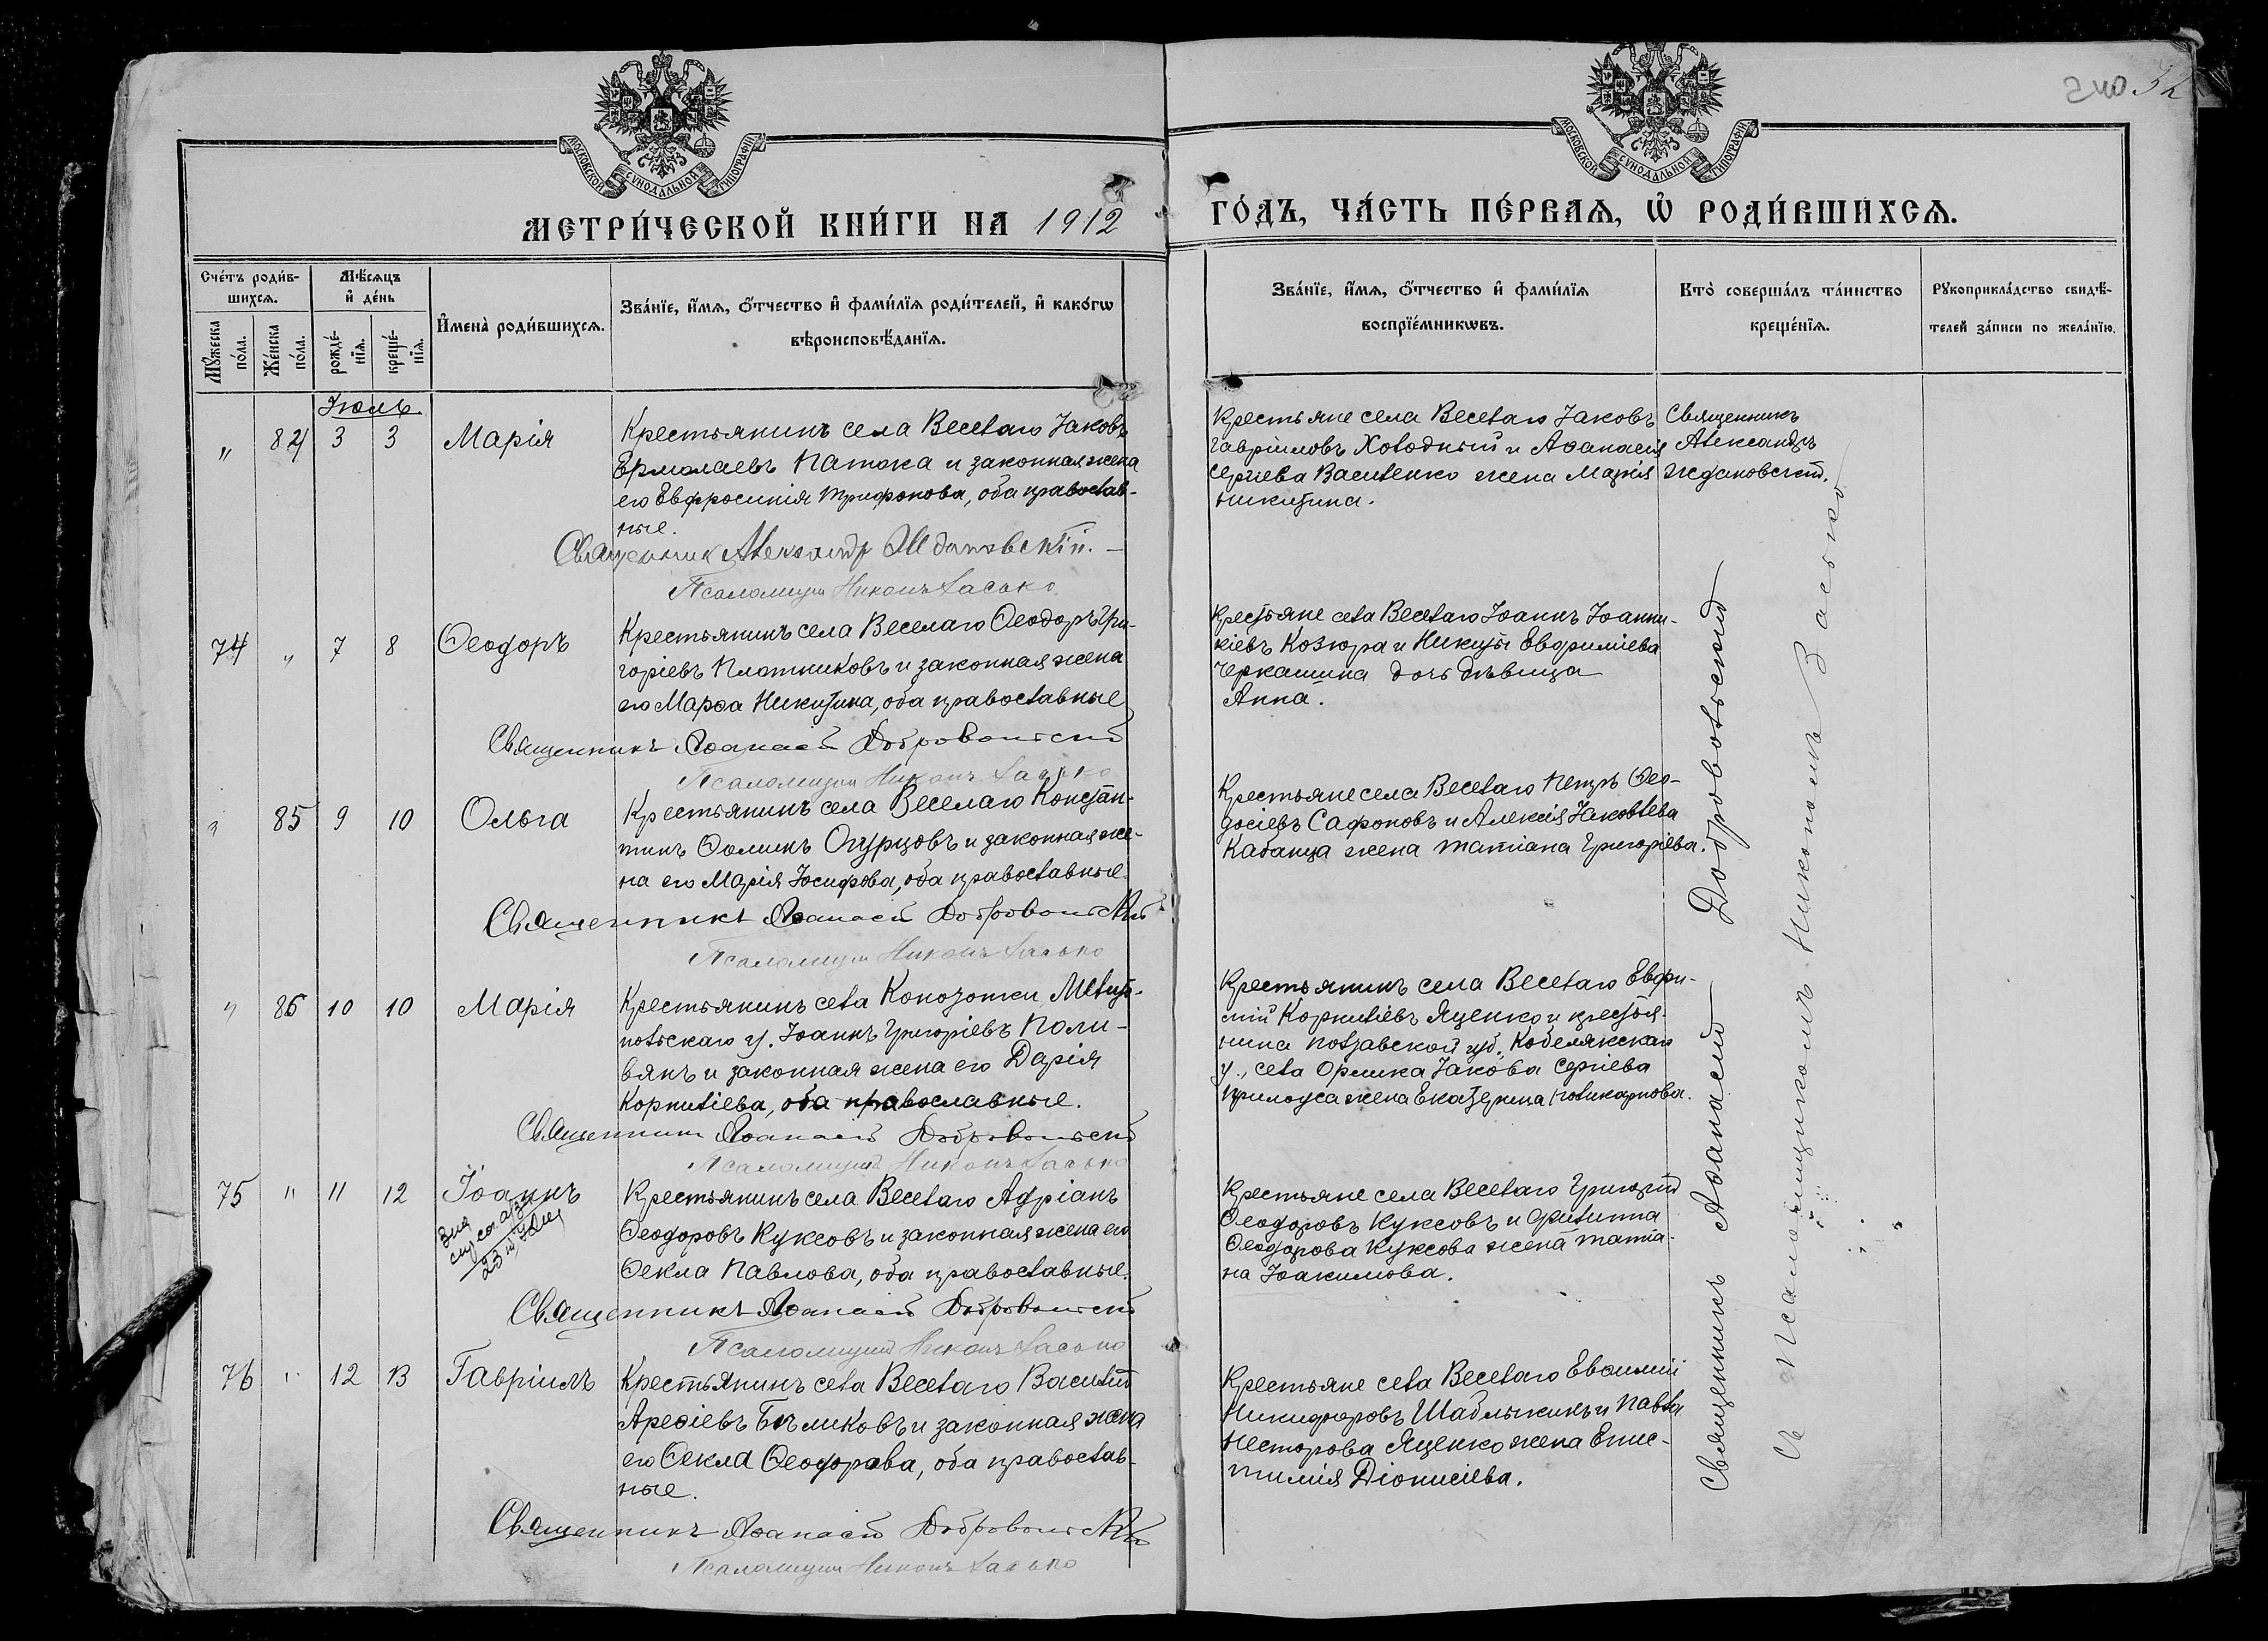 240 32
МОСКОВСКОЙ СУНОДАЛЬНОЙ ТИПОГРАФІИ
МОСКОВСКОЙ СУНОДАЛЬНОЙ ТИПОГРАФІИ
МЕТРИ́ЧЕСКОЙ КНИ́ГИ НА 1912
ГО́ДЪ, ЧА́СТЬ ПЕ́РВАѦ, Ѽ РОДИ́ВШИХСѦ.
Сче́тъ роди́в-
шихсѧ.
Мꙋ́жеска по́ла.
Же́нска по́ла.
Мѣ́сѧцъ
и҆ де́нь
рожде́-
нїѧ.
креще́-
нїѧ.
И҆мена̀ роди́вшихсѧ.
Зва́нїе, и҆́мѧ, ѻ҆́тчество и҆ фами́лїѧ роди́телей, и҆ како́гѡ
вѣроисповѣ́данїѧ.
Зва́нїе, и҆́мѧ, ѻ҆́тчество и҆ фами́лїѧ
воспрїе́мникѡвъ.
Кто̀ соверша́лъ та́инство
креще́нїѧ.
Рꙋкоприкла́дство свидѣ́-
телей за́писи по жела́нїю.
Іюль
" 84 3 3 Марія
Крестьянинъ села Веселаго Іаковъ
Ермолаевъ Патока и законная жена
его Евфросинія Трифонова, оба православ-
ные.
Священник Александр Ждановскій.
Псаломщик Никонъ Засько
Крестьяне села Веселаго Іаковъ
Гавріиловъ Холодный и Аѳанасія
Сергіева Василенко жена Марія
Никитина.
Священникъ
Александръ
Ждановскій.
74 " 7 8 Ѳеодоръ
Крестьянинъ села Веселаго Ѳеодоръ Гри-
горіевъ Плотниковъ и законная жена
его Марѳа Никитина, оба православные
Священникъ Аѳанасій Добровольскій
Псаломщик Никонъ Засько
Крестьяне села Веселаго Іоаннъ Іоанни-
кіевъ Козюра и Никиты Евфиміева
Черкашина дочь дѣвица
Анна.
" 85 9 10 Ольга
Крестьянинъ села Веселаго Констан-
тинъ Ѳоминъ Огурцовъ и законная же-
на его Марія Іосифова, оба православные.
Священникъ Аѳанасій Добровольскій
Псаломщик Никонъ Засько
Крестьяне села Веселаго Петръ Ѳео-
досіевъ Сафоновъ и Алексія Іаковлева
Кабанца жена Татіана Григоріева.
" 86 10 10 Марія
Крестьянинъ села Конозотки Мелито-
польскаго у. Іоаннъ Григоріевъ Поли-
вянъ и законная жена его Дарія
Корниліева, оба православные.
Священникъ Аѳанасій Добровольскій
Псаломщик Никонъ Засько
Крестьянинъ села Веселаго Евфи-
мій Корниліевъ Яценко и крестья-
нина Полтавской губ. Кобелякскаго
у., села Орлика Іакова Сергіева
Прилоуса жена Екатерина Поликарпова.
75 " 11 12 Іоаннъ
Крестьянинъ села Веселаго Адріанъ
Ѳеодоровъ Куксовъ и законная жена его
Ѳекла Павлова, оба православные.
Священникъ Аѳанасій Добровольскій
Псаломщик Никонъ Засько
Крестьяне села Веселаго Григорій
Ѳеодоровъ Куксовъ и Филиппа
Ѳеодорова Куксова жена Татіа-
на Іоакимова.
76 " 12 13 Гавріилъ
Крестьянинъ села Веселаго Василій
Ареѳіевъ Бѣликовъ и законная жена
его Ѳекла Ѳеодорова, оба православ-
ные.
Священникъ Аѳанасій Добровольскій
Псаломщик Никонъ Засько
Крестьяне села Веселаго Евѳимій
Никифоровъ Шаблыкинъ и Павла
Несторова Яценко жена Епис-
тимія Діонисіева.
Священникъ Аѳанасій Добровольскій
съ Псаломщикомъ Никономъ Засько